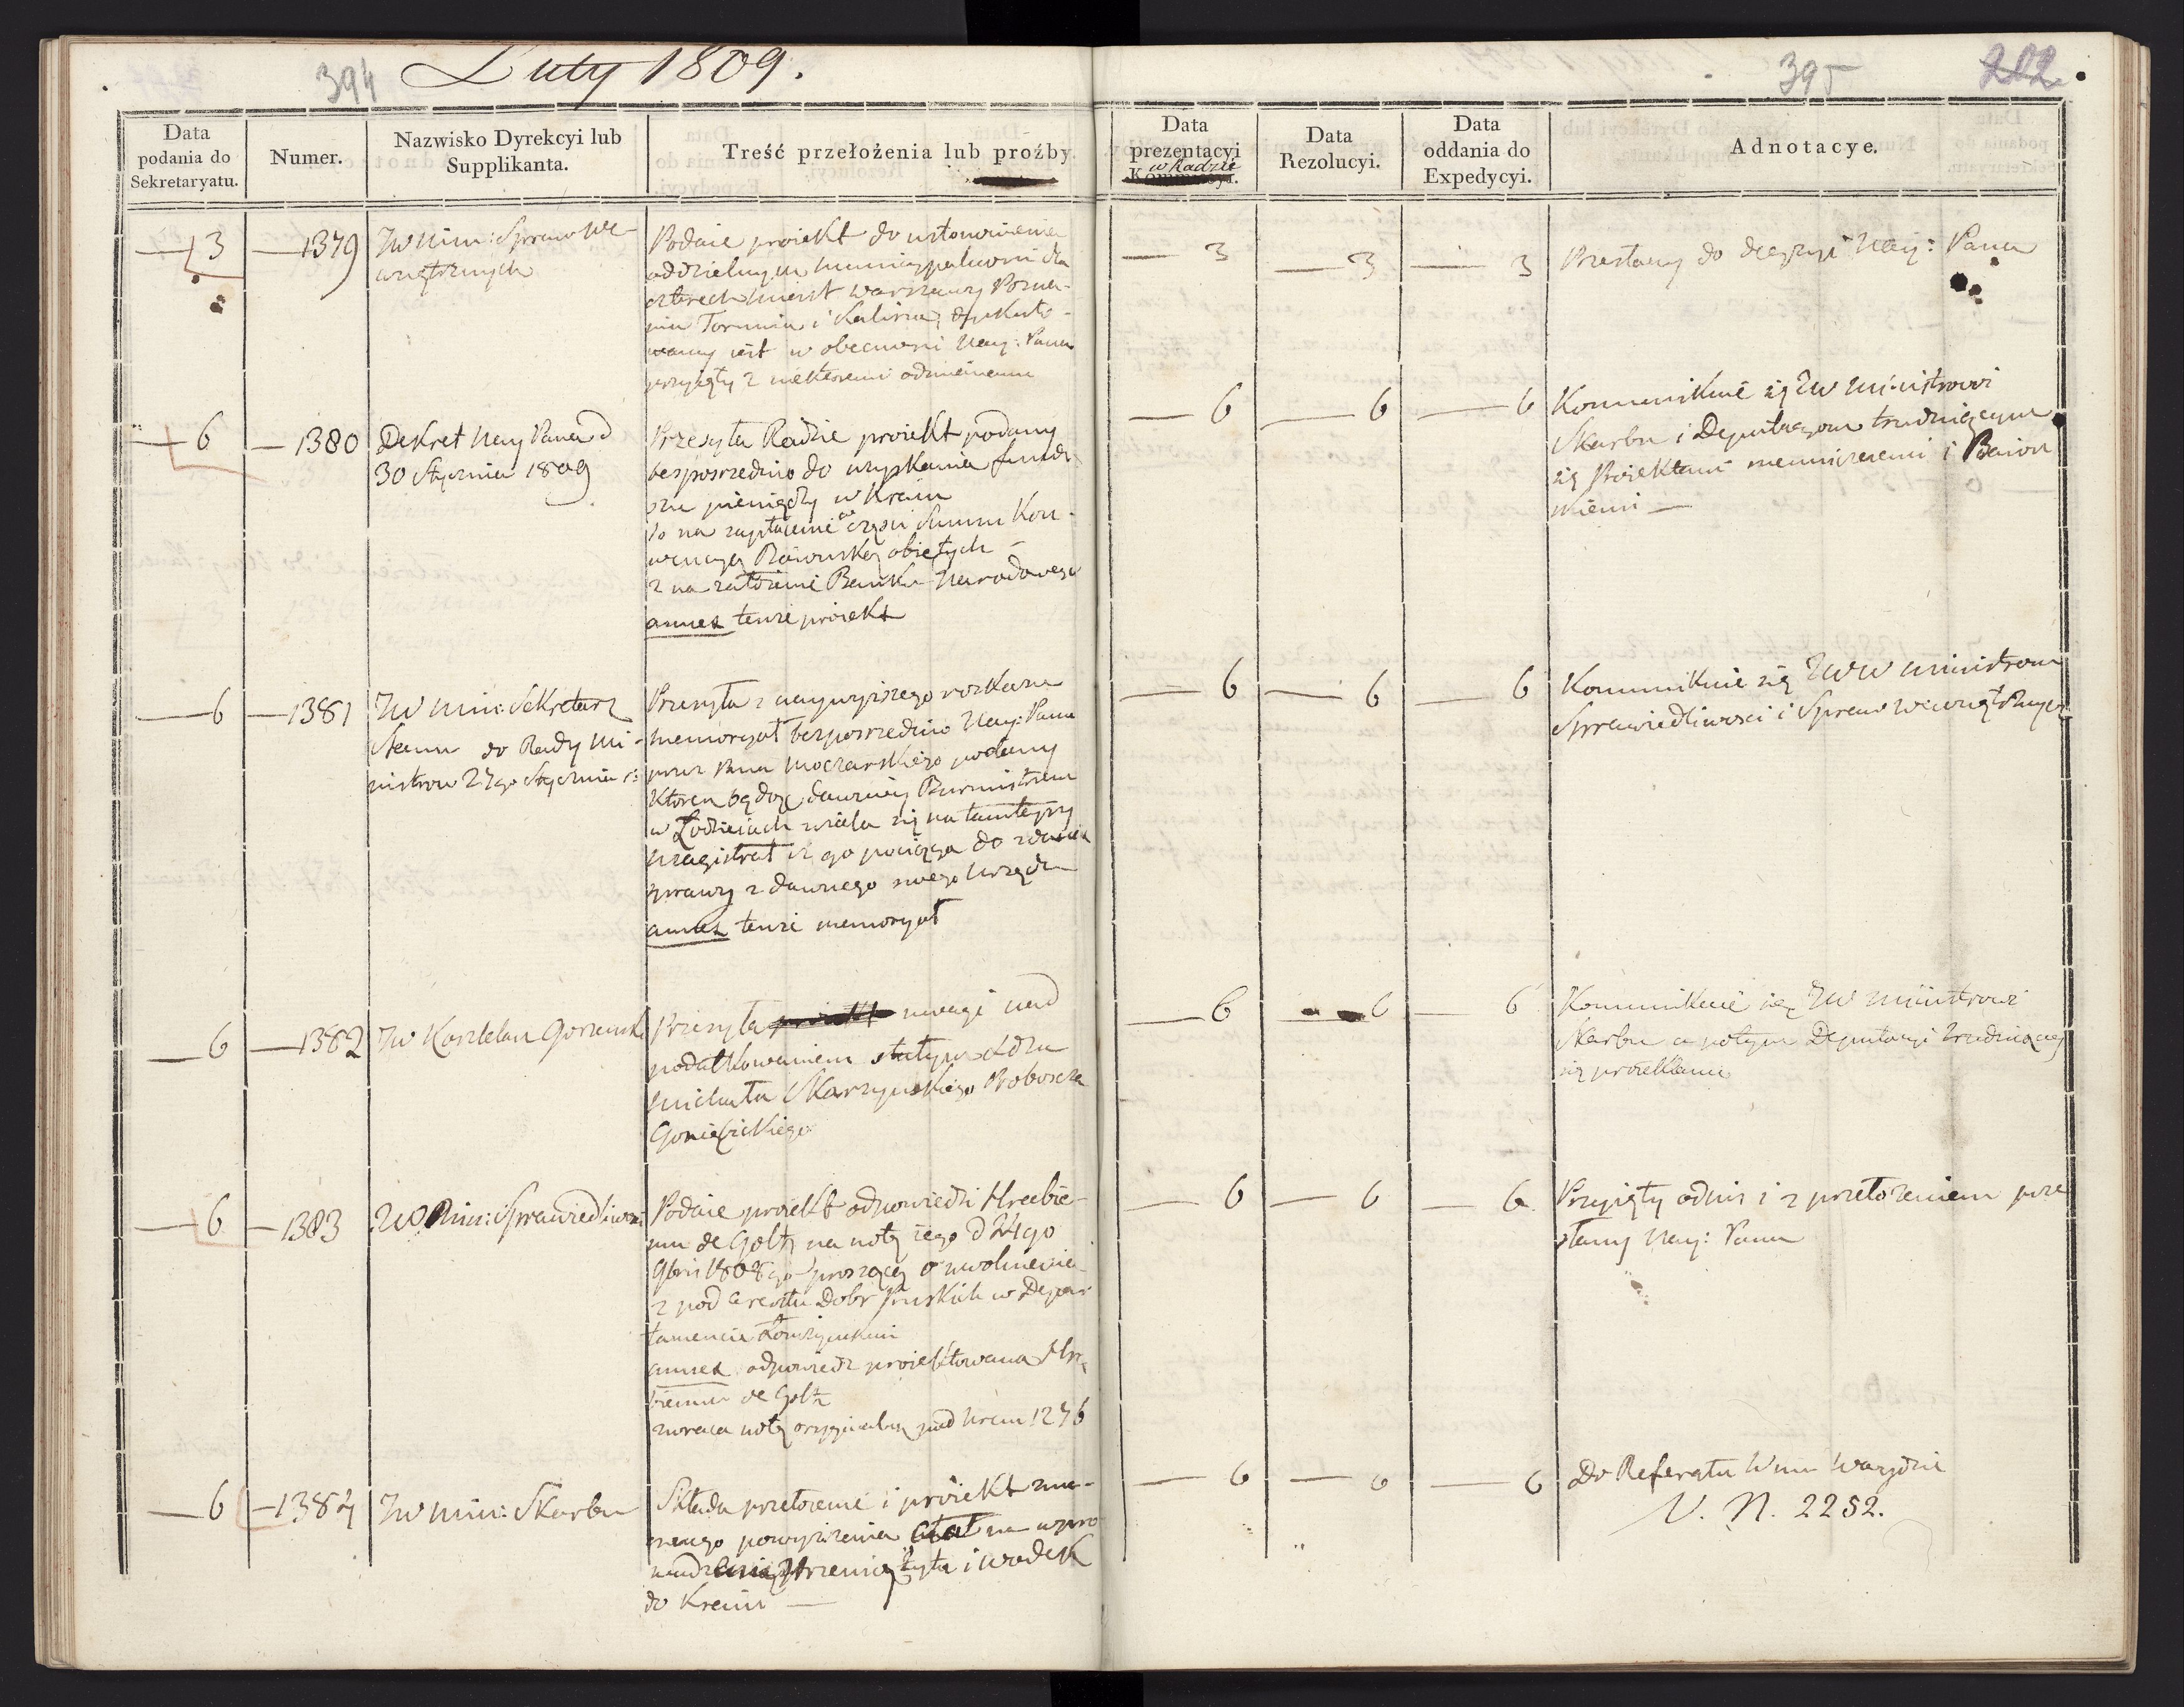 394 Luty 1809.
395 202
Data
podania do
Sekretaryatu.
Numer.
Nazwisko Dyrekcyi lub
Supplikanta.
Treść przełożenia lub proźby
Data
prezentacyi
w Radzie
Data
Rezolucyi.
Data
oddania do
Expedycyi.
Adnotacye.
3 — 1379
JW Min: Spraw We-
wnętrznych
Podaie proiekt do ustanowienia
oddzielnych municypalności dla
czterech miast Warszawy Pozna-
nia Torunia i Kalisza, dyskuto-
wany iest w obecności Nay: Pana
przyięty z niektoremi odmianami
— 3 — 3 — 3
Przesłany do decyzyi Nay: Pana
6 — 1380
Dekret Nay Pana d
30 Stycznia 1809
Przesyła Radzie proiekt podany
bezposrzednio do uzyskania fundu
szu pieniędzy w Kraiu
1o na zapłacenie części Summ Kon-
wencyą Baiońską obiętych —
2 na założenie Banku Narodowego
annex tenże proiekt
— 6 — 6 — 6
Kommunikuie się JW Ministrowi
Skarbu i Deputacyom trudniącym
się Proiektami menniczemi i Baion
skiemi —
— 6 — 1381
JW Min: Sekretarz
Stanu do Rady Mi-
nistrow 27go Stycznia
Przesyła z naywyższego rozkazu
memoryał bezposrzednio Nay: Panu
przez Pana Moczarskiego podany
Ktoren będąc dawniey Burmistrzem
w Łodzieiach użala się na tamteyszy
Magistrat iż go pociąga do zdania
sprawy z dawnego swego Urzędu
annex tenże memoryał
— 6 — 6 — 6
Kommunikuie się JWW Ministrom
Sprawiedliwości i Spraw Wewnętrznych
— 6 — 1382
JW Kasztelan Gorzeński
Przesyła uwagi nad
podatkowaniem stałym Xdza
Michała Skarzynskiego Proboszcza
— 6 — 6 — 6
Kommunikuie się JW Ministrowi
Skarbu a potym Deputacyi trudniącey
się proiektami
— 6 — 1383
JW Min: Sprawiedliwości
Podaie proiekt odpowiedzi Hrabie-
mu de Goltz na notę iego d 24go
9bris 1808go proszącą o uwolnienie
z pod aresztu Dobr Pruskich w Depar
tamencie Łomżynskim
annex odpowiedz proiektowana Hra
biemu de Goltz
zwraca notę oryginalną pod Nrem 1276
— 6 — 6 — 6
Przyięty odpis i z przełożeniem prze
słany Nay: Panu
— 6 — 1384
JW Min: Skarbu
Składa przełożenie i proiekt zna-
cznego powyższenia Ceł na wpro
wadzenie żyta i wodek
do Kraiu —
— 6 — 6 — 6
Do Referatu
V. N. 2252.